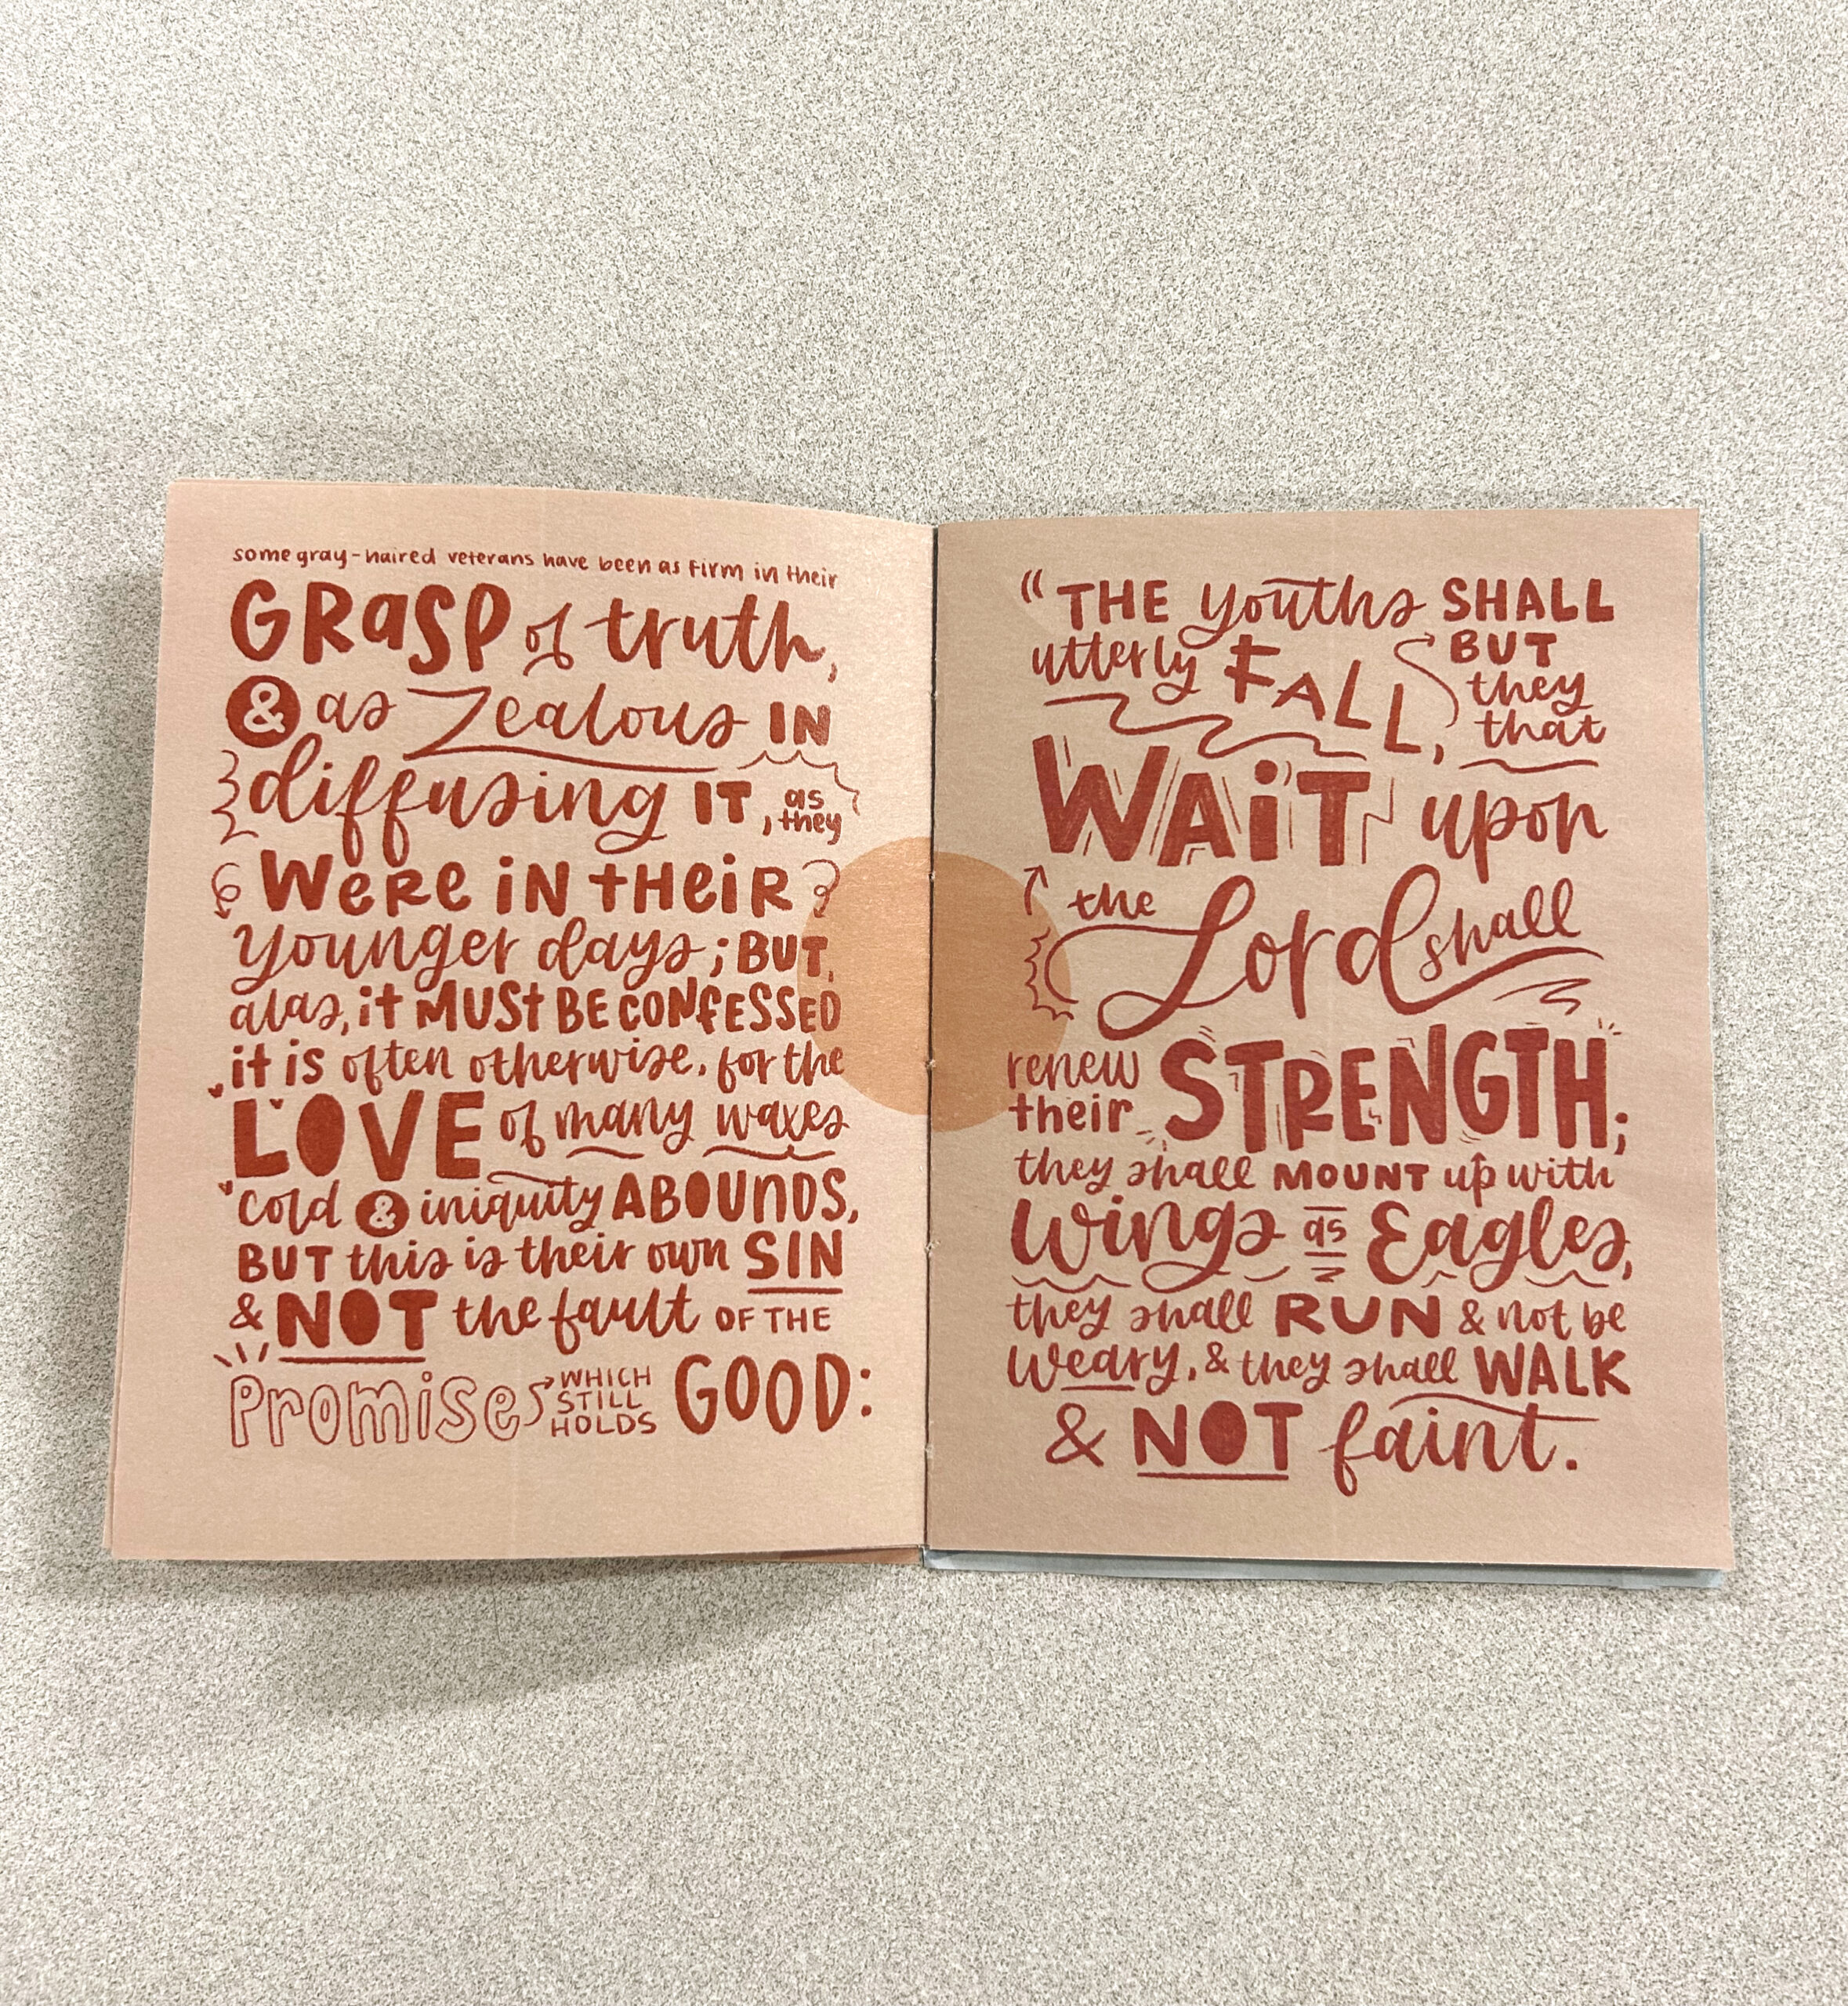 some gray-haired veterans have been as firm in their
GRaSP of truth,
& as zealous IN
diffusing IT, as
they
WeRe iN tHeiR
younger days; BUT,
alas, it MUSt BE CONfESSED
it is often otherwise, for the
LOVE of many waxes
cold & iniquity ABOUnDS,
BUT this is their own SIN
& NOT the fault OF THE
Promise WHICH
STILL
HOLDS GOOD:
“THE youths SHALL
utterly FALL, BUT
they
that
WAiT upon
the Lord shall
renew
their STRENGTH;
they shall MOUNT up with
wings as Eagles,
they shall RUN & not be
weary, & they shall WALK
& NOT faint.